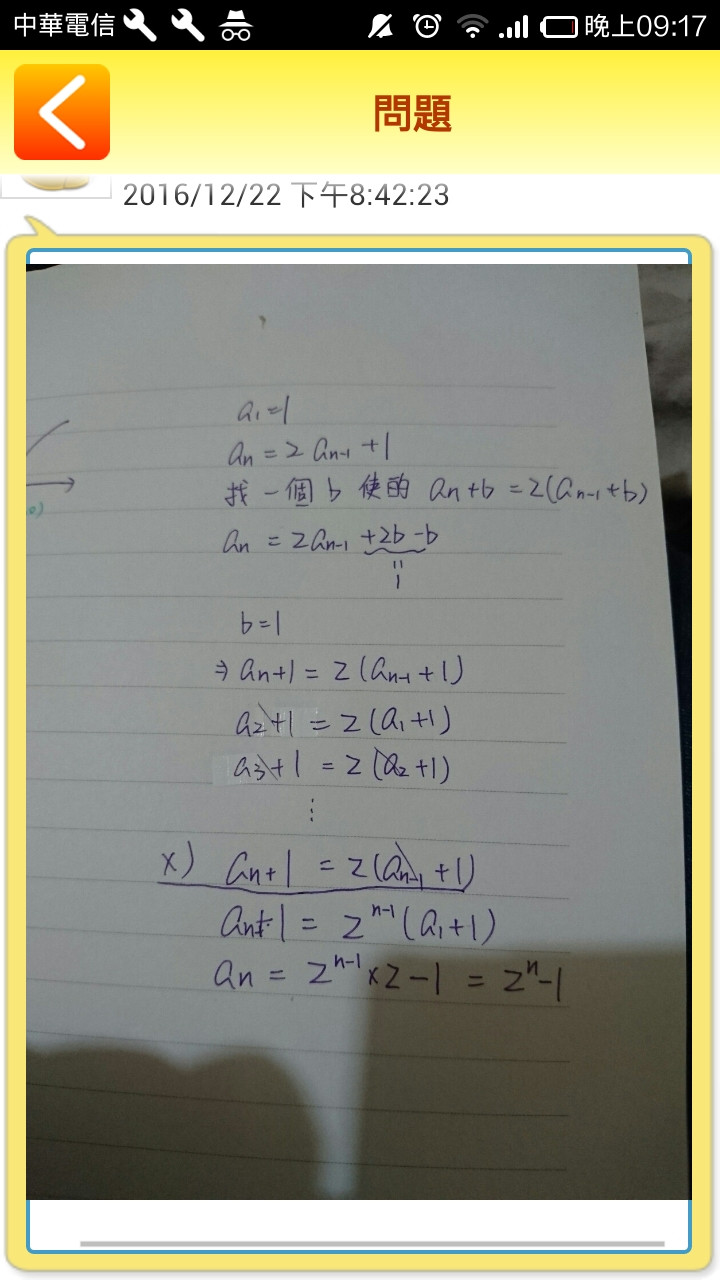 中華電信 晚上09:17
問題
2016/12/22 下午8:42:23
a₁=1
aₙ = 2aₙ₋₁ +1
找一個 b 使的 aₙ+b = 2(aₙ₋₁+b)
aₙ = 2aₙ₋₁ +2b -b
=
1
b=1
⇒ aₙ+1 = 2(aₙ₋₁+1)
a₂+1 = 2(a₁+1)
a₃+1 = 2(a₂+1)
⋮
x) aₙ+1 = 2(aₙ₋₁+1)
aₙ+1 = 2ⁿ⁻¹(a₁+1)
aₙ = 2ⁿ⁻¹×2-1 = 2ⁿ-1